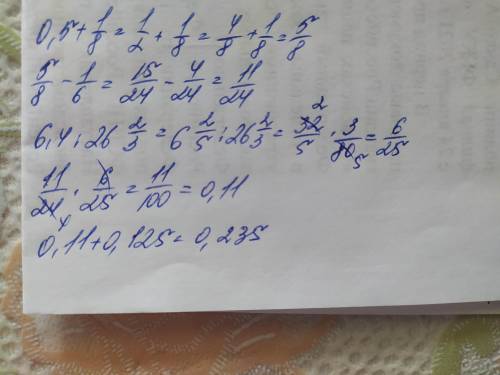 0,5+1/8=1/2+1/8=4/8+1/8=5/8
5/8-1/6=15/24-4/24=11/24
6,4:26 2/3=6 2/5:26 2/3=32/5 2·3/80 5=6/25
11/24 4·6/25=11/100=0,11
0,11+0,125=0,235